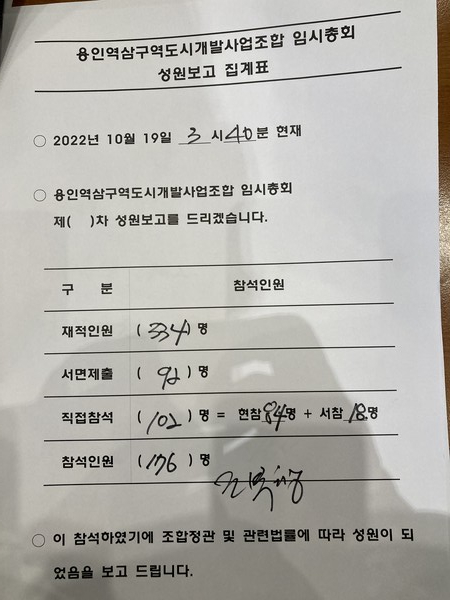 용인역삼구역도시개발사업조합 임시총회
성원보고 집계표
○ 2022년 10월 19일 3 시 40분 현재
○ 용인역삼구역도시개발사업조합 임시총회
제( )차 성원보고를 드리겠습니다.
구 분 참석인원
재적인원 ( 334 ) 명
서면제출 ( 92 ) 명
직접참석 ( 102 ) 명 = 현참 84명 + 서참 18명
참석인원 ( 176 ) 명
○ 이 참석하였기에 조합정관 및 관련법률에 따라 성원이 되
었음을 보고 드립니다.